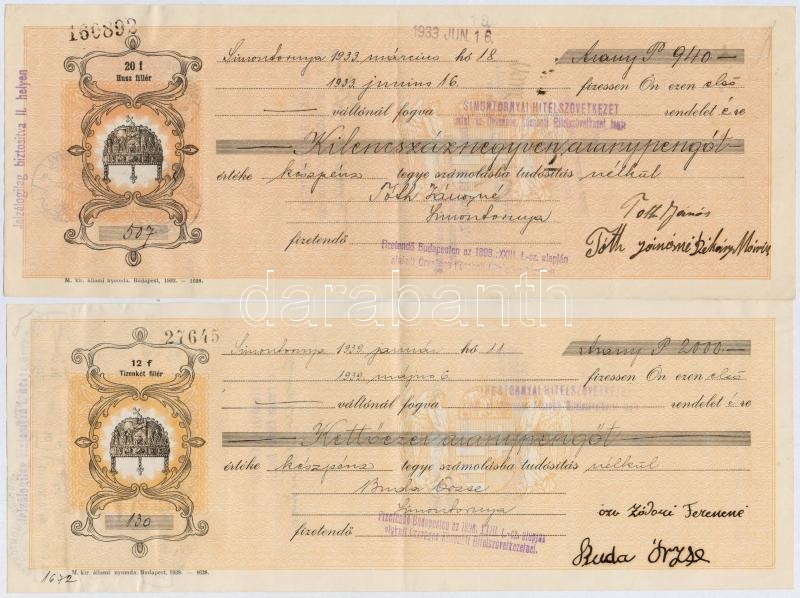 160892
1933 JUN. 16.
20 f
Husz fillér
Simontornya 1933. március hó 18.
Arany P 940.—
1933. junius 16.
fizessen Ön ezen első
váltónál fogva
SIMONTORNYAI HITELSZÖVETKEZET
rendelet é re
Kilencszáznegyven aranypengőt
értéke készpénz tegye számolásba tudósítás nélkül
Tóth Jánosné
Simontornya
fizetendő
Fizetendő Budapesten az 1898. XXIII. t.-cz. alapján
Tóth János
Tóth Jánosné
507
Jelzálogilag biztosítva II. helyen
M. kir. állami nyomda. Budapest, 1932. — 1628.
darabanth
27645
12 f
Tizenkét fillér
Simontornya 1939. január hó 11
Arany P 2000.—
1939. május 6.
fizessen Ön ezen első
váltónál fogva
SIMONTORNYAI HITELSZÖVETKEZET
rendelet é re
Kettőezer aranypengőt
értéke készpénz tegye számolásba tudósítás nélkül
Buda Örzse
Simontornya
fizetendő
Fizetendő Budapesten az 1898. XXIII. t.-cz. alapján
Ferencné
Buda Örzse
130
M. kir. állami nyomda. Budapest, 1938. — 1628.
1672